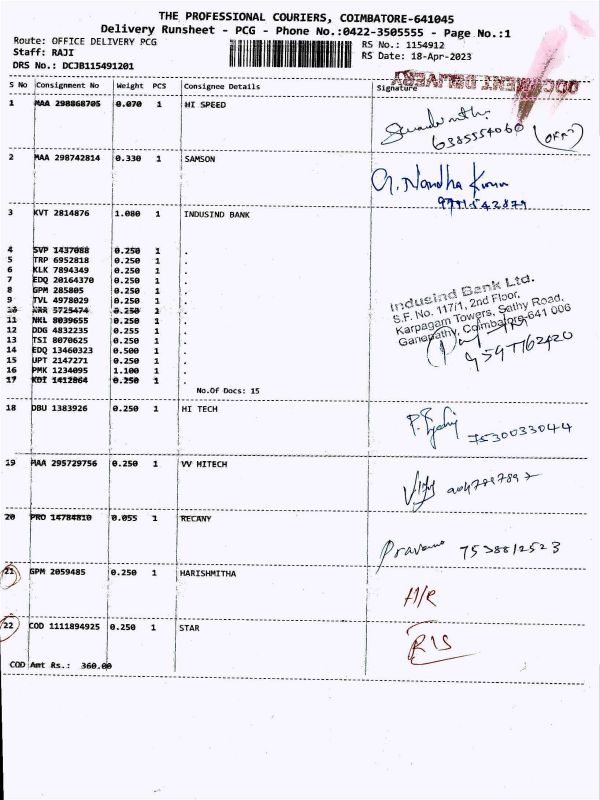 THE PROFESSIONAL COURIERS, COIMBATORE-641045
Delivery Runsheet - PCG - Phone No.:0422-3505555 - Page No.:1
Route: OFFICE DELIVERY PCG
RS No.: 1154912
Staff: RAJI
RS Date: 18-Apr-2023
DRS No.: DCJB115491201
DOCUMENT DELIVERY
S No Consignment No Weight PCS Consignee Details Signature
1 MAA 298868705 0.070 1 HI SPEED
6385554060
2 MAA 298742814 0.330 1 SAMSON
G. Nandha Kumar
3 KVT 2814876 1.080 1 INDUSIND BANK
4 SVP 1437088 0.250 1 .
5 TRP 6952818 0.250 1 .
6 KLK 7894349 0.250 1 .
7 EDQ 20164370 0.250 1 .
8 GPM 285805 0.250 1 .
9 TVL 4978029 0.250 1 .
10 KRR 5725474 0.250 1 .
11 NKL 8039655 0.250 1 .
12 DDG 4832235 0.255 1 .
13 TSI 8070625 0.250 1 .
14 EDQ 13460323 0.500 1 .
15 UPT 2147271 0.250 1 .
16 PMK 1234095 1.100 1 .
17 KDI 1412864 0.250 1 .
Indusind Bank Ltd.
S.F. No. 117/1, 2nd Floor,
Karpagam Towers, Sathy Road,
Ganapathy, Coimbatore-641 006
9597162420
No.Of Docs: 15
18 DBU 1383926 0.250 1 HI TECH
7530033044
19 MAA 295729756 0.250 1 VV HITECH
20 PRO 14784810 0.055 1 RECANY
7538812523
21 GPM 2059485 0.250 1 HARISHMITHA
H/R
22 COD 1111894925 0.250 1 STAR
RIS
COD Amt Rs.: 360.00